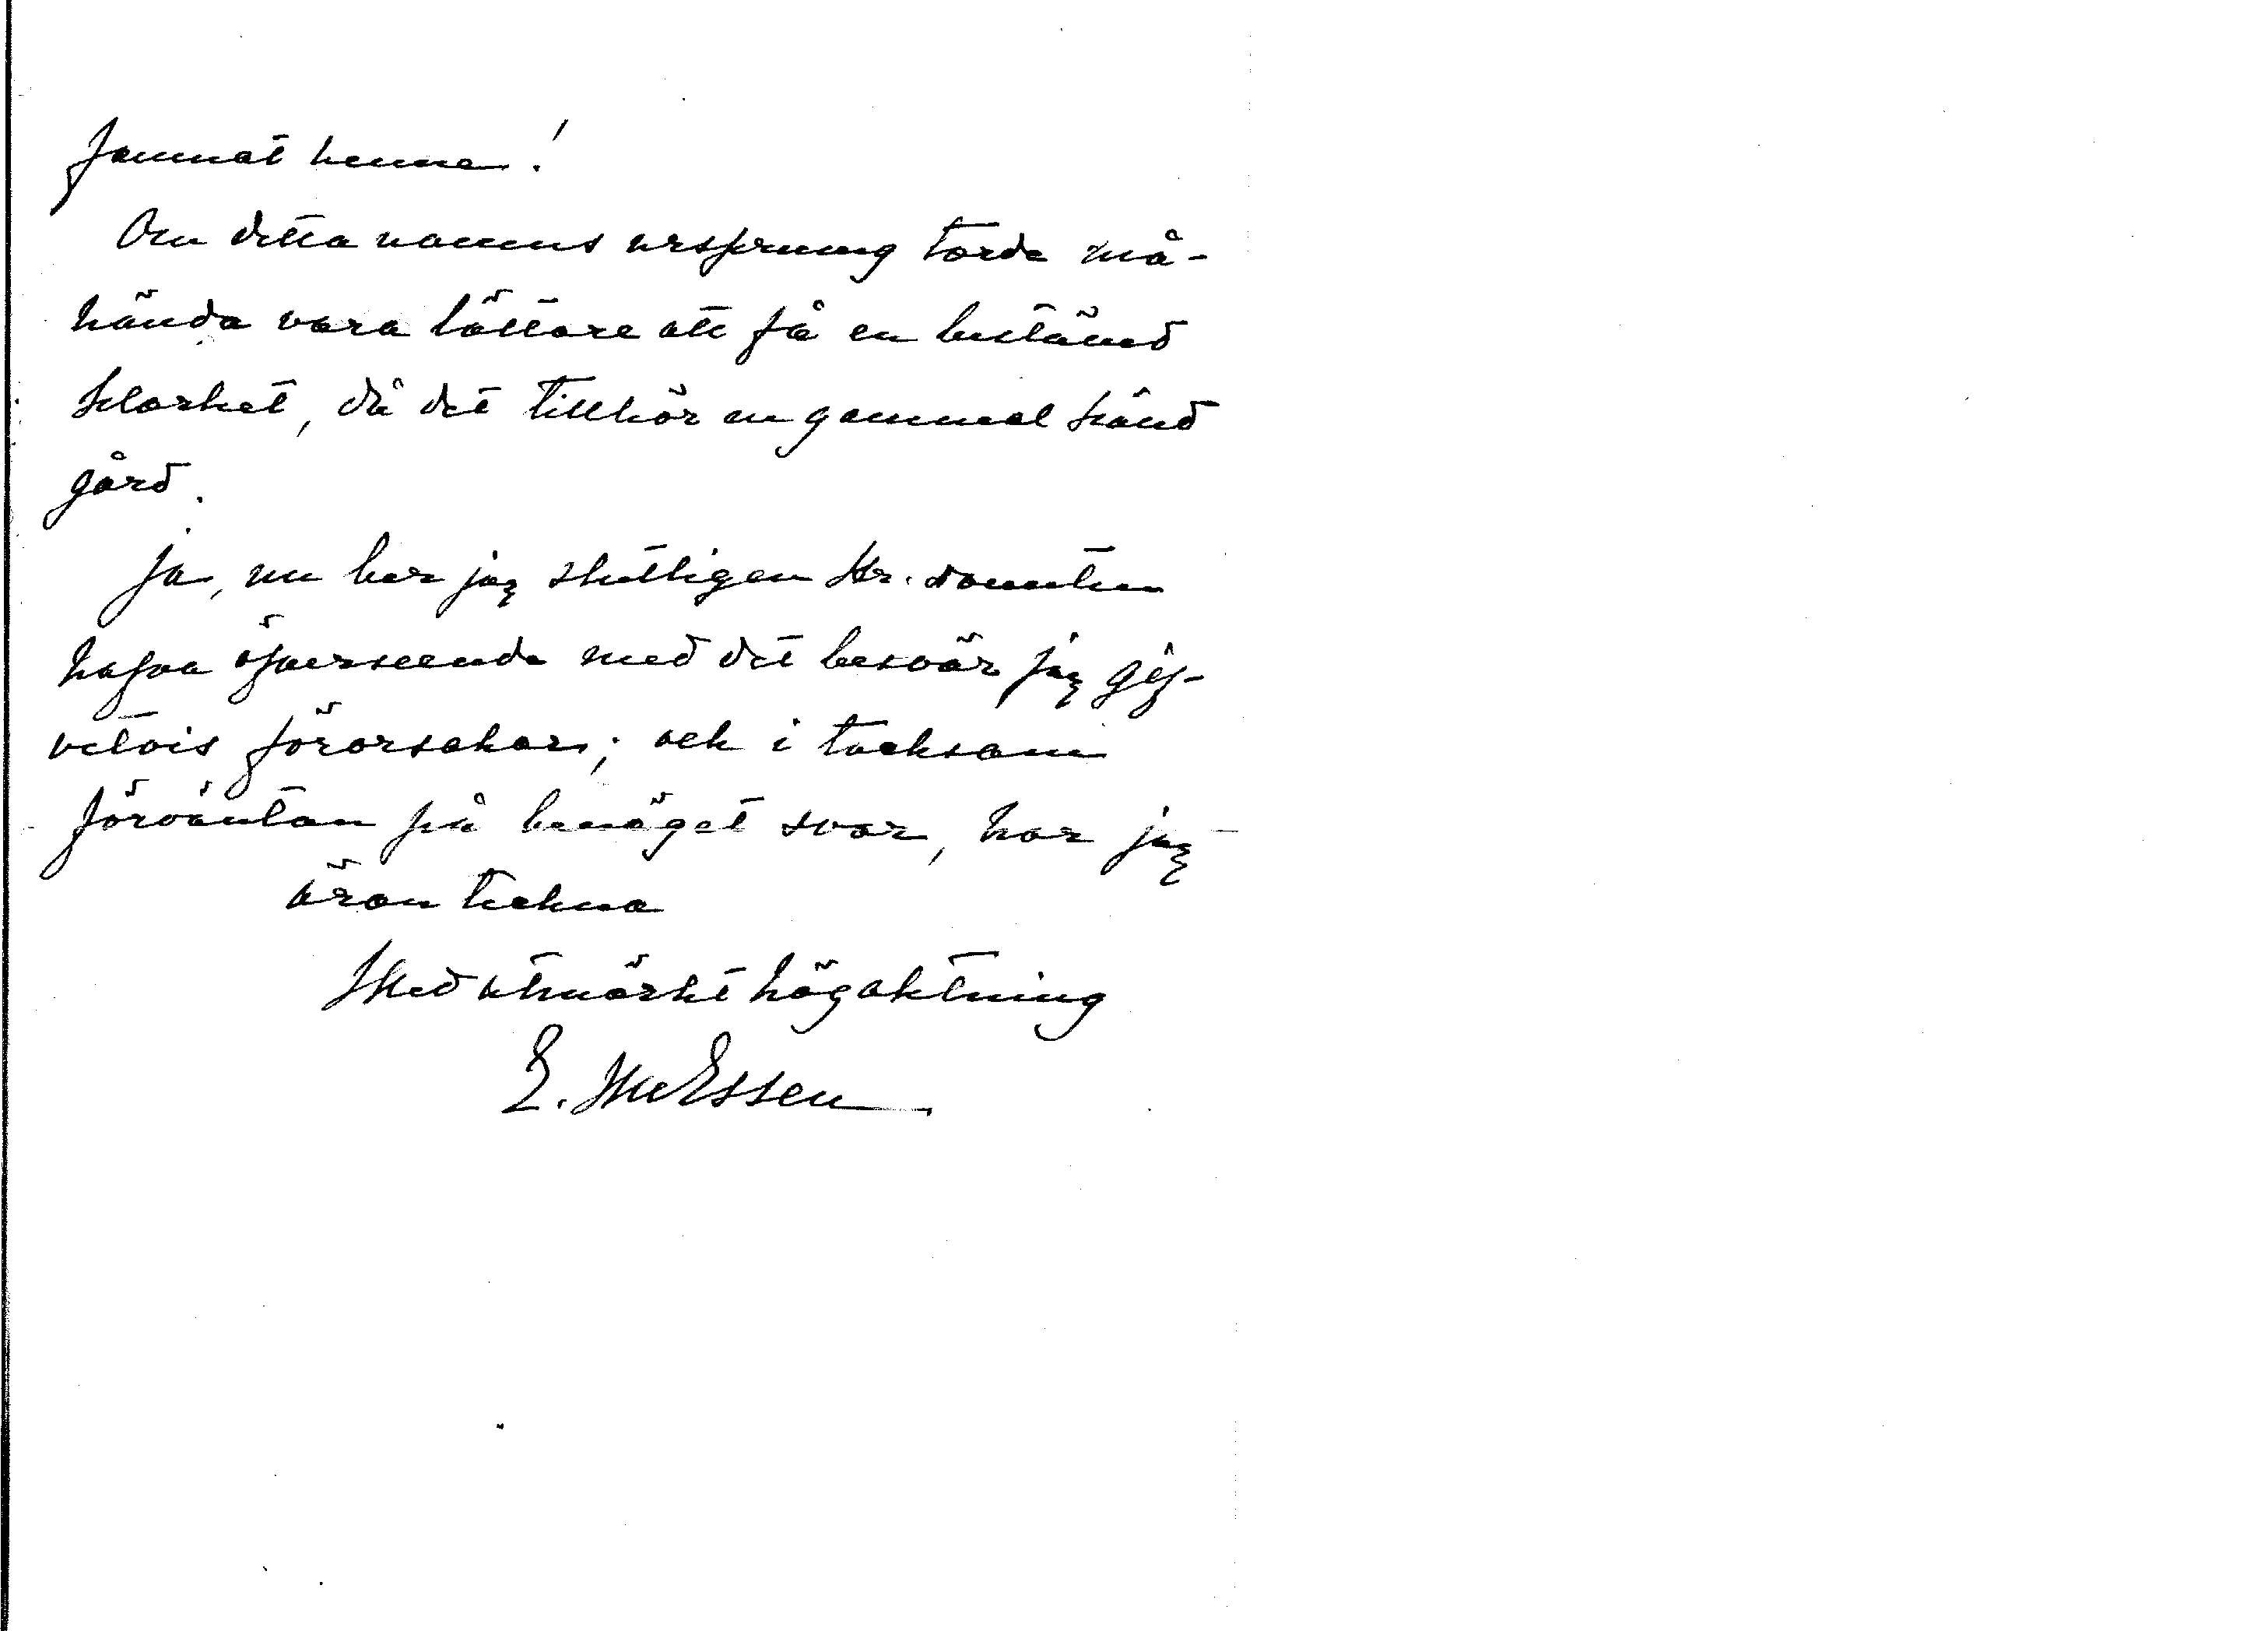 famnat henne!
Om detta namns ursprung torde må-
hända vara lättare att få en bestämd
klarhet, då det tillhör en gammal känd
gård.
Ja, nu ber jag slutligen Hr.
hafva öfverseende med det besvär jag gif-
vetvis förorsakar; och i tacksam
förväntan på benäget svar, har jag
äran teckna
Med utmärkt högaktning
E. Essen